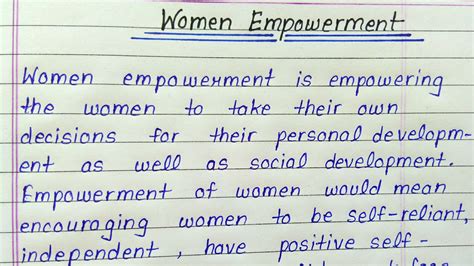 Women Empowerment
Women empowerment is empowering
the women to take their own
decisions for their personal developm-
ent as well as social development.
Empowerment of women would mean
encouraging women to be self-reliant,
independent, have positive self-